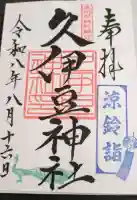 奉拝
涼詣鈴
久伊豆神社
令和八年八月十六日